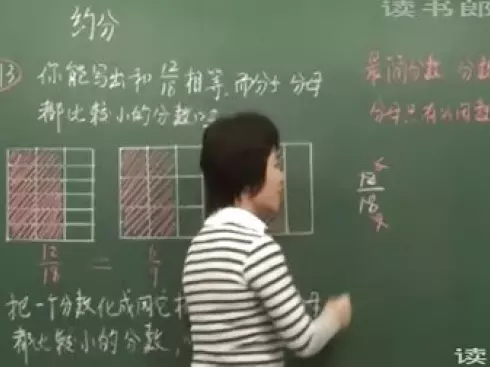 读书郎
约分
13 你能写出和12/18相等,而分子分母
都比较小的分数吗?
最简分数 分数
分母只有公因数
12/18 = 6/9
12/18
把一个分数化成同它
都比较小的分数,
读